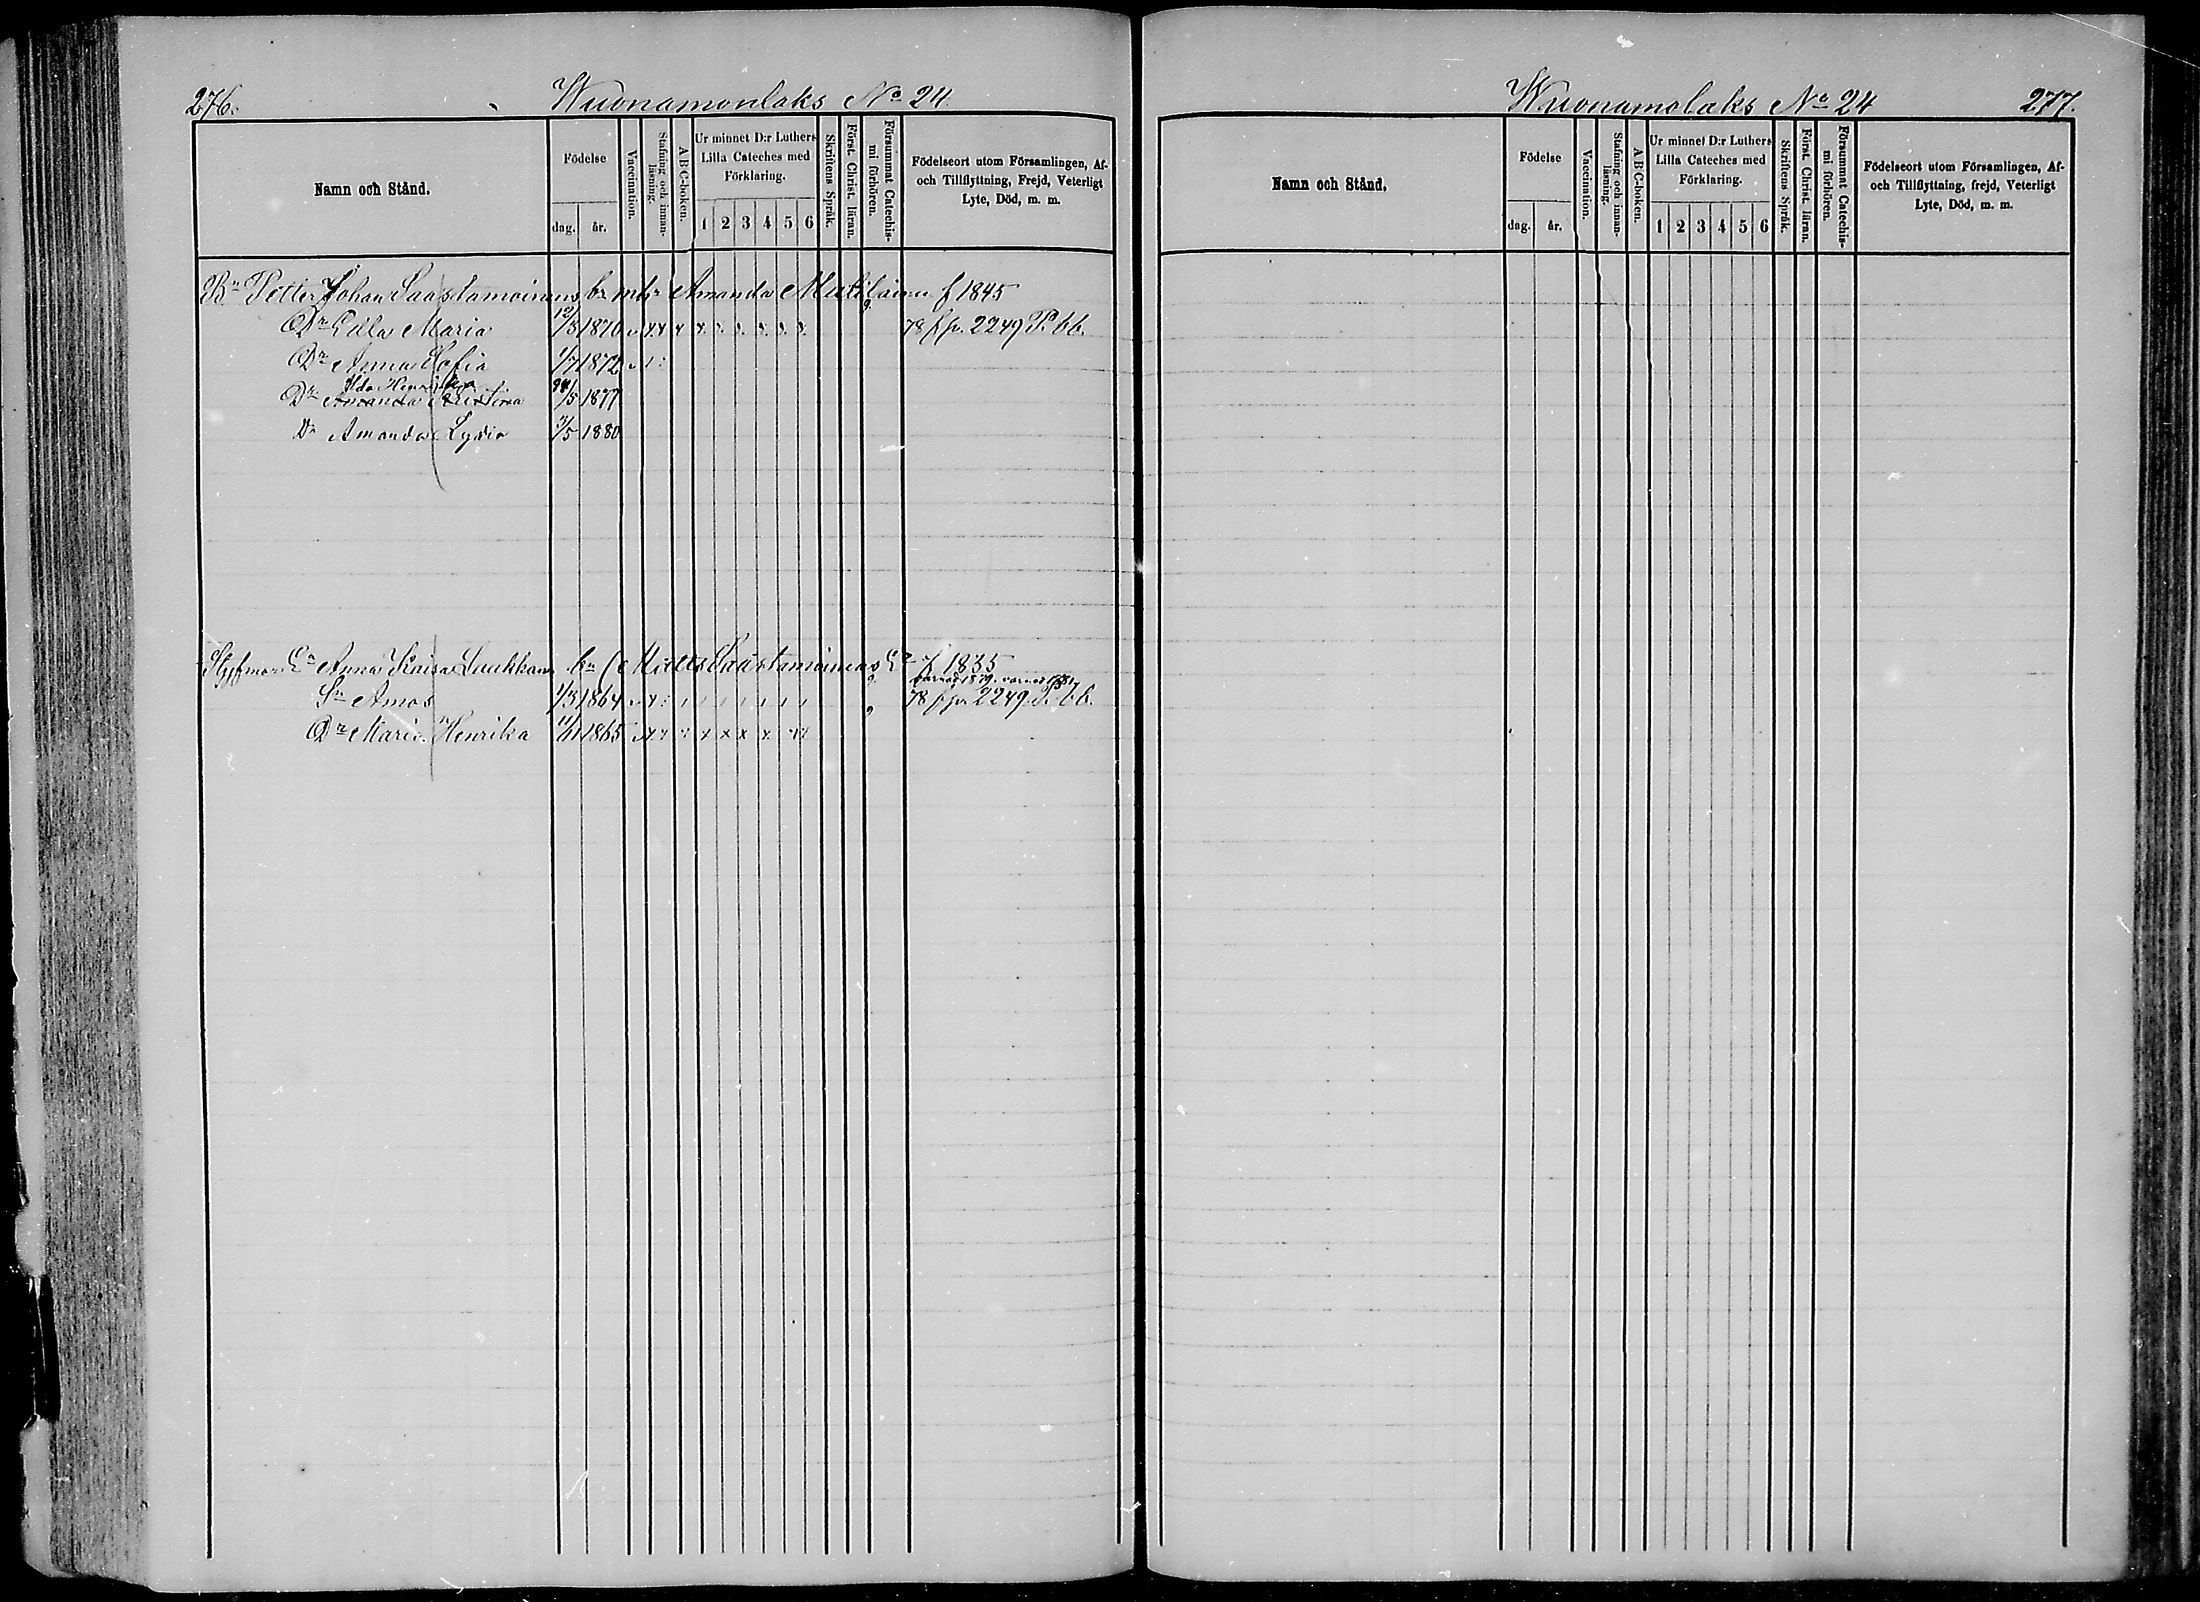 276. Wuonamonlaks No 24
Namn och Stånd.
Födelse
dag. år.
Vaccination.
Stafning och innan-läsning.
A B C-boken.
Ur minnet D:r Luthers
Lilla Cateches med
Förklaring.
1 2 3 4 5 6
Skriftens Språk.
Först. Christ. läran.
Försummat Catechis-mi förhören.
Födelseort utom Församlingen, Af-
och Tillflyttning, Frejd, Veterligt
Lyte, Död, m. m.
Bn Petter Johan Saastamoinens br mhr Amanda f 1845
Dr Ulla Maria 12/3 1870 78 f fr. 2249 P. bb.
Dr Anna Sofia 1/7 1872
Ida Henrika
Dr Amanda Kristina 24/5 1877
Dr Amanda Lydia 7/5 1880
Anna Kaisa Laukkan Saastamoinens f 1835
Sn Amos 1/3 1864 78 f fr. 2249 P. bb.
Dr Maria Henrika 11/11 1865
Wuonamolaks No 24 277.
Namn och Stånd.
Födelse
dag. år.
Vaccination.
Stafning och innan-läsning.
A B C-boken.
Ur minnet D:r Luthers
Lilla Cateches med
Förklaring.
1 2 3 4 5 6
Skriftens Språk.
Först. Christ. läran.
Försummat Catechis-mi förhören.
Födelseort utom Församlingen, Af-
och Tillflyttning, frejd, Veterligt
Lyte, Död, m. m.